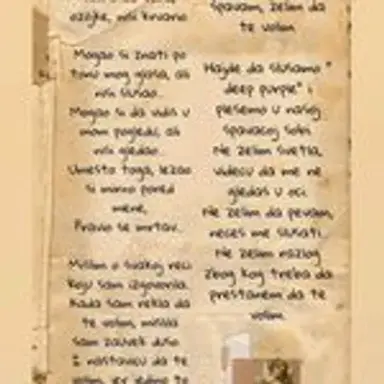 ožiljke, niti krvario
Mogao si znati po
tonu mog glasa, ali
nisi slušao.
Mogao si da vidiš u
mom pogledu, ali
nisi gledao.
Umesto toga, ležao
si mirno pored
mene,
Pravio se mrtav.
Mislim o svakoj reči
koju sam izgovorila.
Kada sam rekla da
te volim, mislila
sam zauvek dušo.
I nastaviću da te
volim, jer jedino te
spavam, želim da
te volim
Hajde da slušamo "
deep purple" i
plešemo u našoj
spavaćoj sobi.
Ne želim svetla,
videću da me ne
gledaš u oči.
Ne želim da pevam,
nećeš me slušati.
Ne želim razlog
zbog kog treba da
prestanem da te
volim.